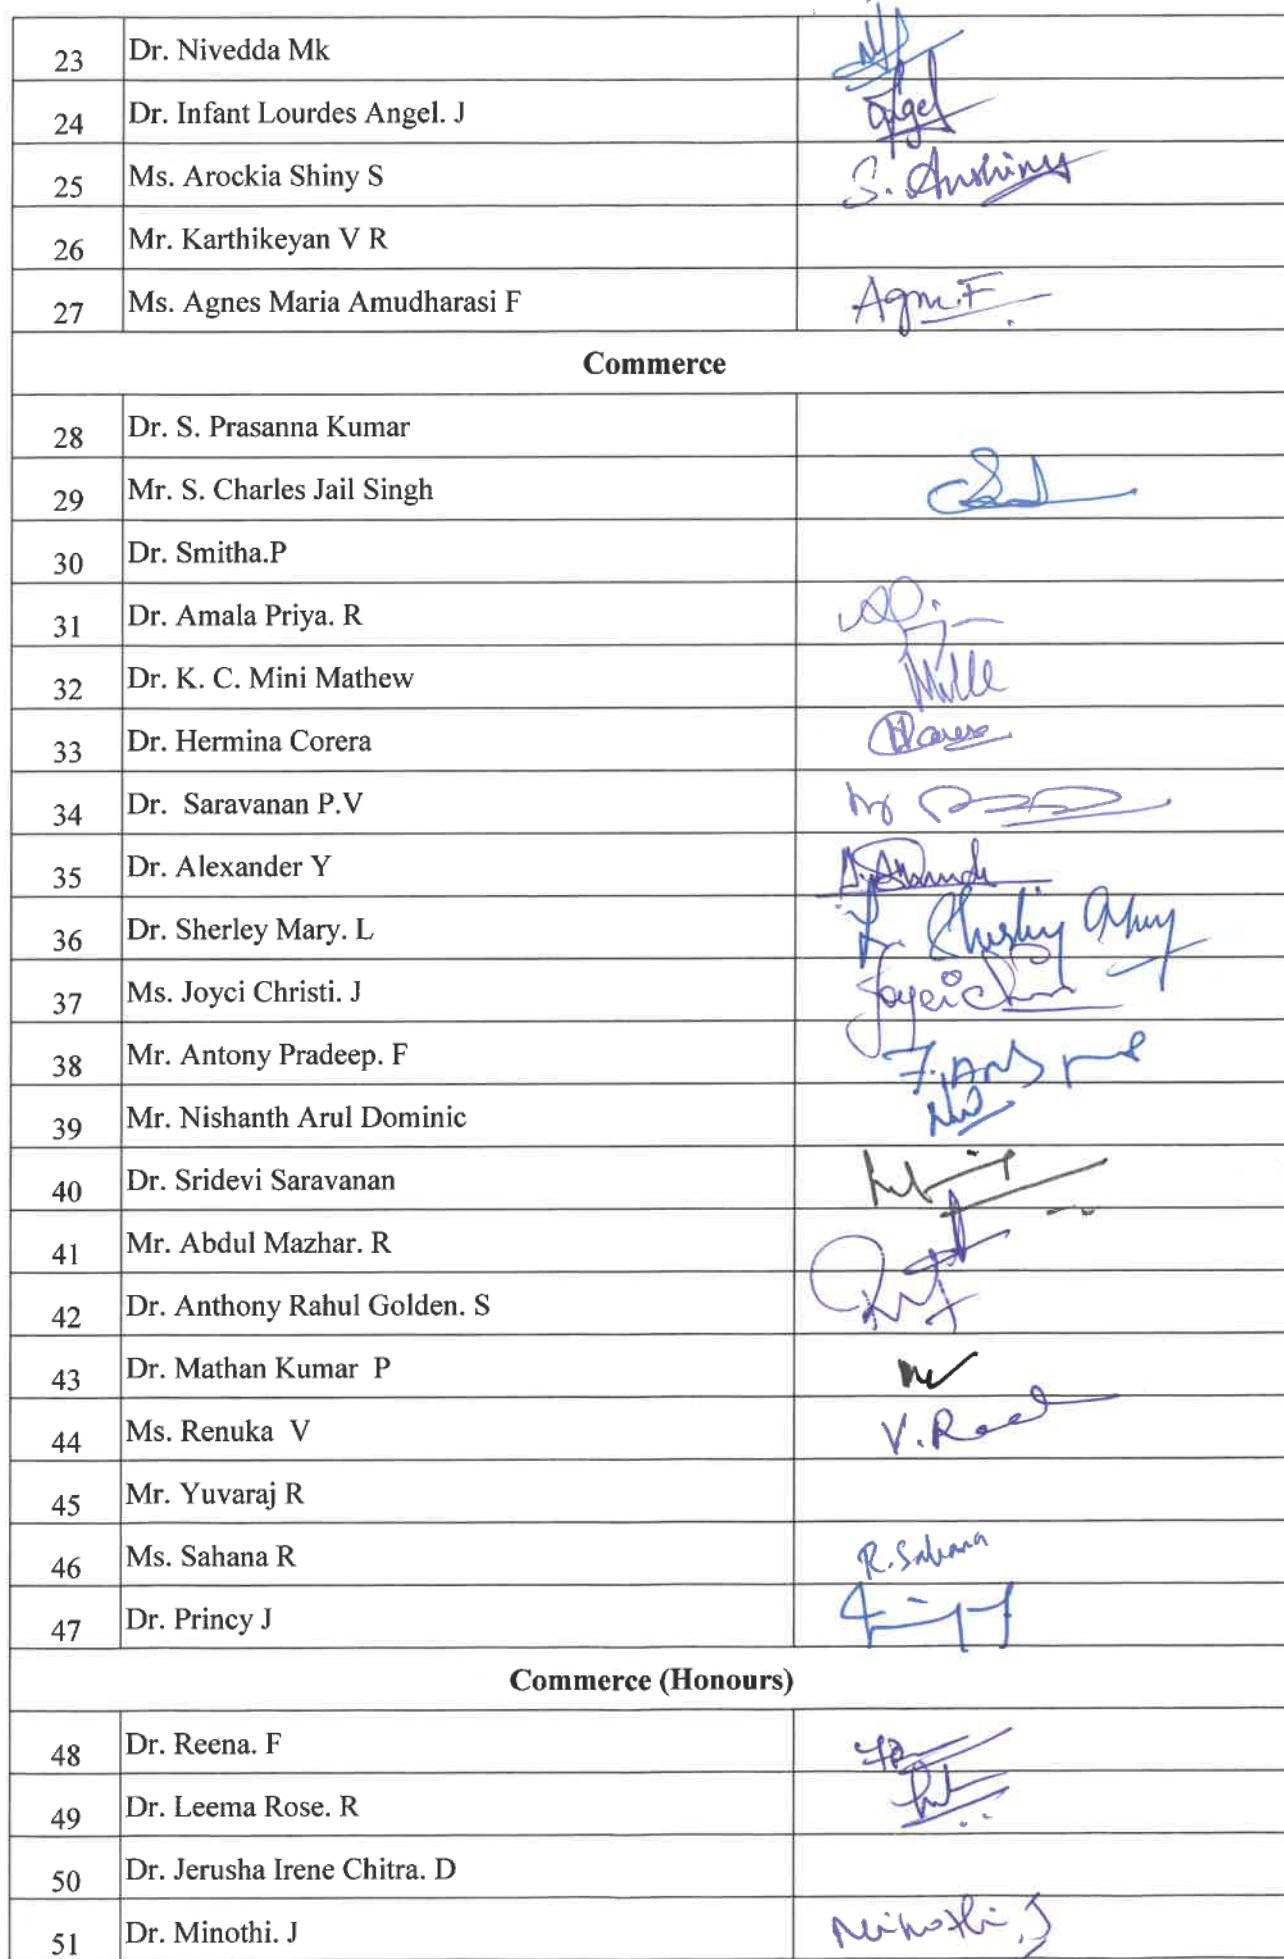 23 Dr. Nivedda Mk
24 Dr. Infant Lourdes Angel. J Angel
25 Ms. Arockia Shiny S S. Arushiny
26 Mr. Karthikeyan V R
27 Ms. Agnes Maria Amudharasi F
Commerce
28 Dr. S. Prasanna Kumar
29 Mr. S. Charles Jail Singh
30 Dr. Smitha.P
31 Dr. Amala Priya. R
32 Dr. K. C. Mini Mathew
33 Dr. Hermina Corera
34 Dr. Saravanan P.V
35 Dr. Alexander Y
36 Dr. Sherley Mary. L
37 Ms. Joyci Christi. J
38 Mr. Antony Pradeep. F
39 Mr. Nishanth Arul Dominic
40 Dr. Sridevi Saravanan
41 Mr. Abdul Mazhar. R
42 Dr. Anthony Rahul Golden. S
43 Dr. Mathan Kumar P
44 Ms. Renuka V
45 Mr. Yuvaraj R
46 Ms. Sahana R R. Sahana
47 Dr. Princy J
Commerce (Honours)
48 Dr. Reena. F
49 Dr. Leema Rose. R
50 Dr. Jerusha Irene Chitra. D
51 Dr. Minothi. J Minothi. J